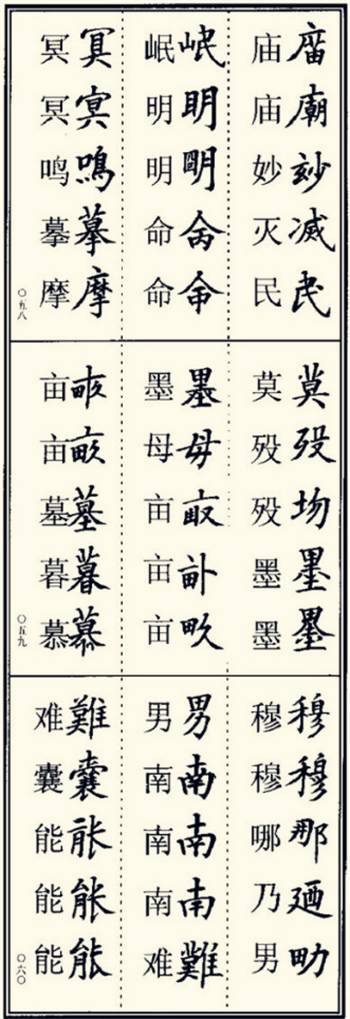 庿廟玅滅民
庙庙妙灭民
岷眀明命命
岷明明命命
冥冥鳴摹摩
冥冥鸣摹摩
〇五八
莫歿墨墨
莫殁殁墨墨
墨母
墨母亩亩亩
墓暮慕
亩亩墓暮慕
〇五九
穆穆那廼
穆穆哪乃男
男南南南難
男南南南难
難囊能能能
难囊能能能
〇六〇